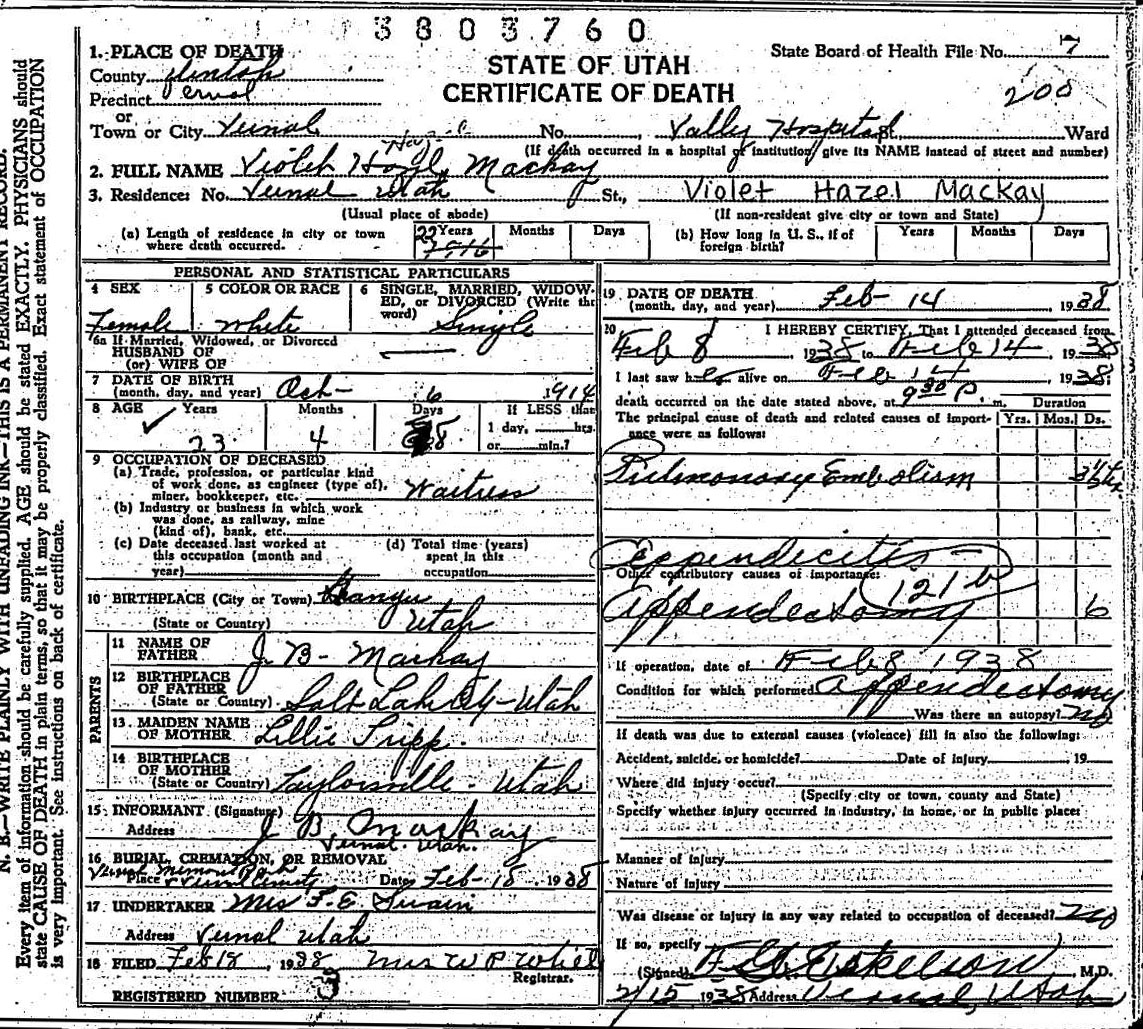 3803760
1. PLACE OF DEATH
State Board of Health File No. 7
County Uintah
STATE OF UTAH
200
Precinct Vernal
CERTIFICATE OF DEATH
or
Town or City Vernal No. , Vally Hospital St. Ward
(If death occurred in a hospital or institution, give its NAME instead of street and number)
2. FULL NAME Violet Hazel Mackay
3. Residence: No. Vernal Utah St., Violet Hazel Mackay
(Usual place of abode) (If non-resident give city or town and State)
(a) Length of residence in city or town where death occurred. 23 Years Months Days
(b) How long in U. S., if of foreign birth? Years Months Days
PERSONAL AND STATISTICAL PARTICULARS
4 SEX Female
5 COLOR OR RACE White
6 SINGLE, MARRIED, WIDOWED, or DIVORCED (Write the word) Single
6a If Married, Widowed, or Divorced
HUSBAND OF
(or) WIFE OF
7 DATE OF BIRTH
(month, day, and year) Oct- 6 1914
8 AGE Years Months Days If LESS than
23 4 8 1 day, hrs.
or min.?
9 OCCUPATION OF DECEASED
(a) Trade, profession, or particular kind
of work done, as engineer (type of),
miner, bookkeeper, etc. Waitress
(b) Industry or business in which work
was done, as railway, mine
(kind of), bank, etc.
(c) Date deceased last worked at
this occupation (month and
year)
(d) Total time (years)
spent in this
occupation
10 BIRTHPLACE (City or Town)
(State or Country) Utah
PARENTS
11 NAME OF
FATHER J. B- Mackay
12 BIRTHPLACE
OF FATHER
(State or Country) Salt Lake City-Utah
13 MAIDEN NAME
OF MOTHER Lillie Tripp.
14 BIRTHPLACE
OF MOTHER
(State or Country) Taylorsville - Utah
15 INFORMANT (Signature) J B. Mackay
Address Vernal. Utah.
16 BURIAL, CREMATION, OR REMOVAL
Vernal Memorial Park
Place Date Feb-18 1938
17 UNDERTAKER Mrs F. E. Swain
Address Vernal Utah
18 FILED Feb 18, 1938 Mrs W P
Registrar.
REGISTERED NUMBER 3
19 DATE OF DEATH
(month, day, and year) Feb- 14 1938
20 I HEREBY CERTIFY, That I attended deceased from
Feb 8 1938 to Feb 14 1938
I last saw her alive on Feb 14 1938
death occurred on the date stated above, at 9 30 P. m. Duration
The principal cause of death and related causes of importance were as follows: Yrs. Mos. Ds.
Pulmonary Embolism
Appendicitis
Other contributory causes of importance:
121 b
Appendectomy 6
If operation, date of Feb 8 1938
Condition for which performed Appendectomy
Was there an autopsy? No
If death was due to external causes (violence) fill in also the following:
Accident, suicide, or homicide? Date of Injury 19
Where did injury occur?
(Specify city or town, county and State)
Specify whether injury occurred in industry, in home, or in public place:
Manner of injury
Nature of Injury
Was disease or injury in any way related to occupation of deceased? No
If so, specify
(Signed) , M.D.
2/15 1938 Address Vernal, Utah
N. B.—WRITE PLAINLY WITH UNFADING INK—THIS IS A PERMANENT RECORD.
Every item of information should be carefully supplied. AGE should be stated EXACTLY. PHYSICIANS should
state CAUSE OF DEATH in plain terms, so that it may be properly classified. Exact statement of OCCUPATION
is very important. See instructions on back of certificate.